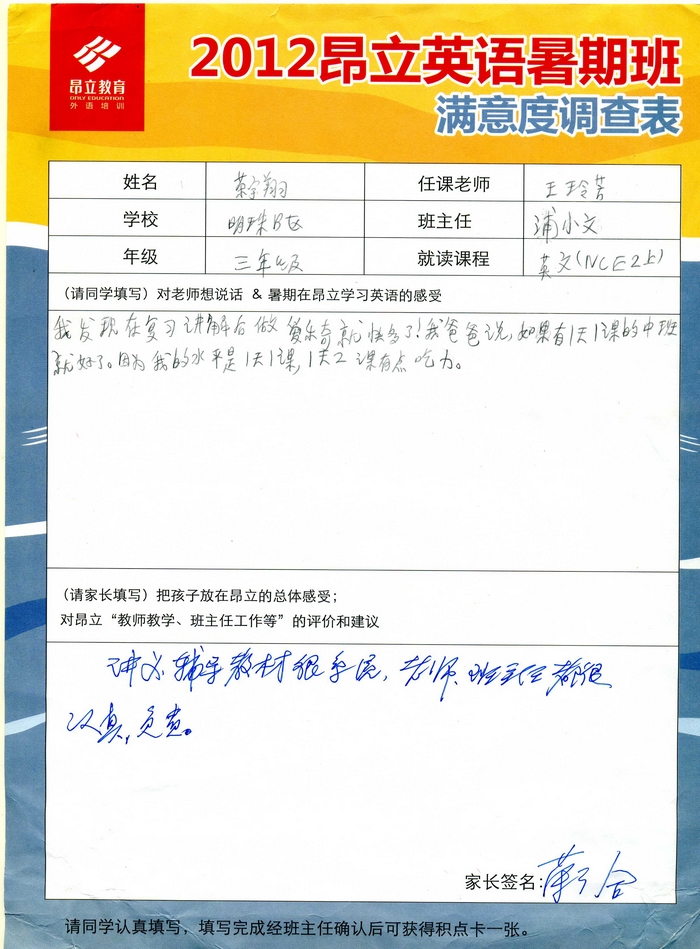 昂立教育
ONLY EDUCATION
外语培训
2012昂立英语暑期班
满意度调查表
姓名 宇翔 任课老师 王玲芳
学校 明珠B区 班主任 浦小文
年级 三年级 就读课程 英文(NCE2上)
(请同学填写)对老师想说话 & 暑期在昂立学习英语的感受
我发现在复习讲解后做 爱乐奇就快多了!我爸爸说,如果有1天1课的中班
就好了。因为我的水平是1天1课,1天2课有点吃力。
(请家长填写)把孩子放在昂立的总体感受;
对昂立“教师教学、班主任工作等”的评价和建议
讲义、辅导教材很系统,老师、班主任都很
认真,负责。
家长签名:
请同学认真填写,填写完成经班主任确认后可获得积点卡一张。